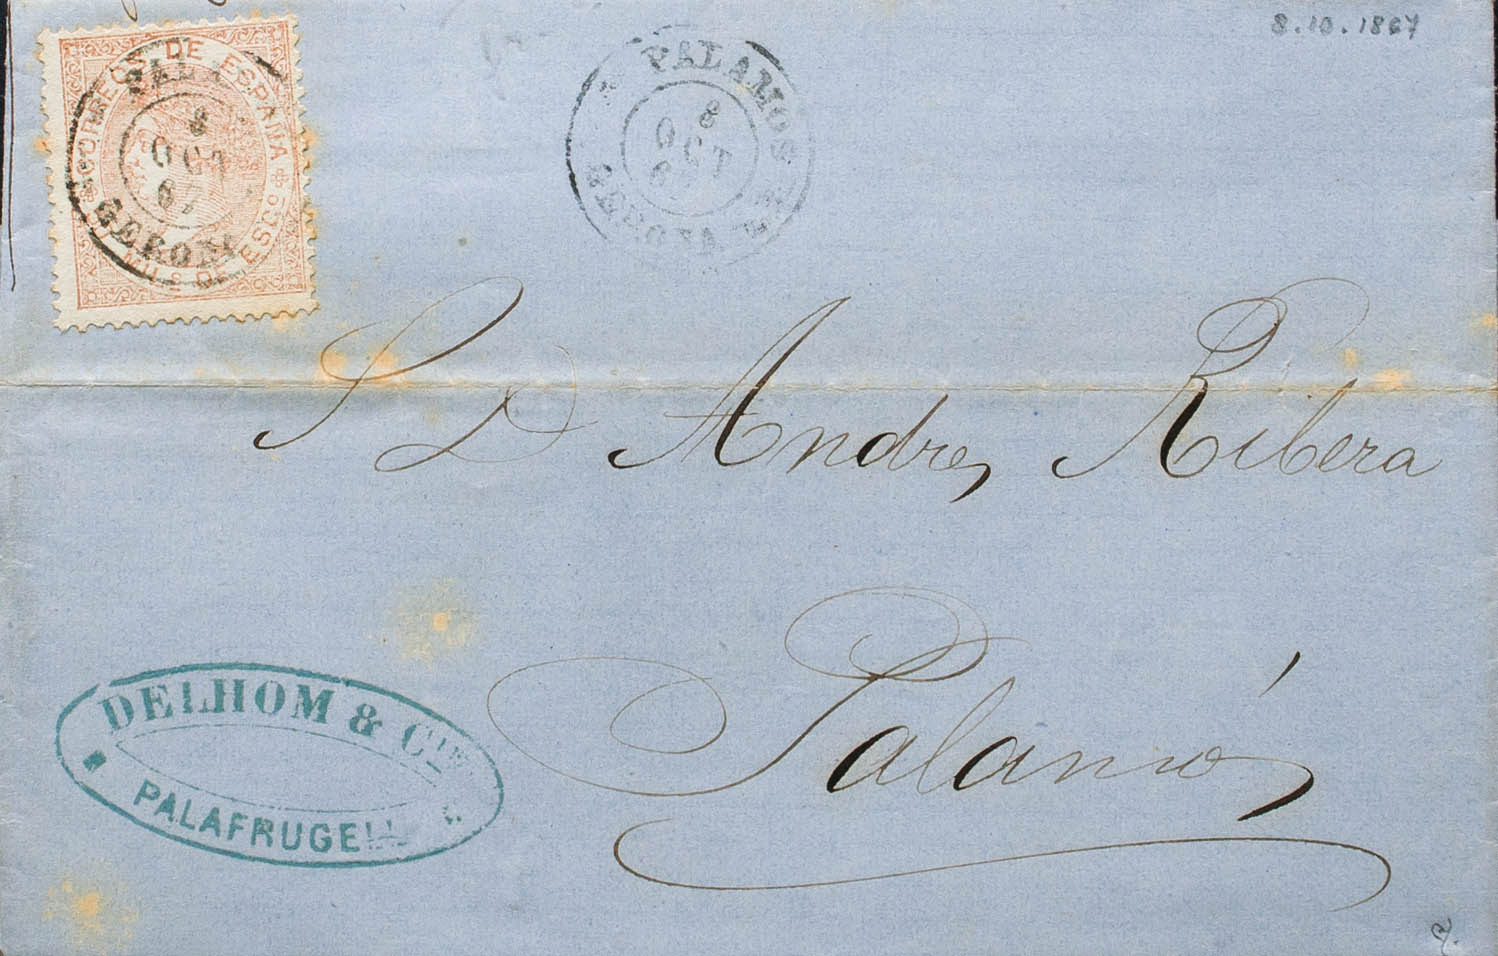 8.10.1867
CORREOS DE ESPAÑA
MILS DE ESCO
PALA
8
OCT
67
GERONA
PALAMOS
8
OCT
67
GERONA
S D Andres Ribera
Palamós
DELHOM & Cie
PALAFRUGELL